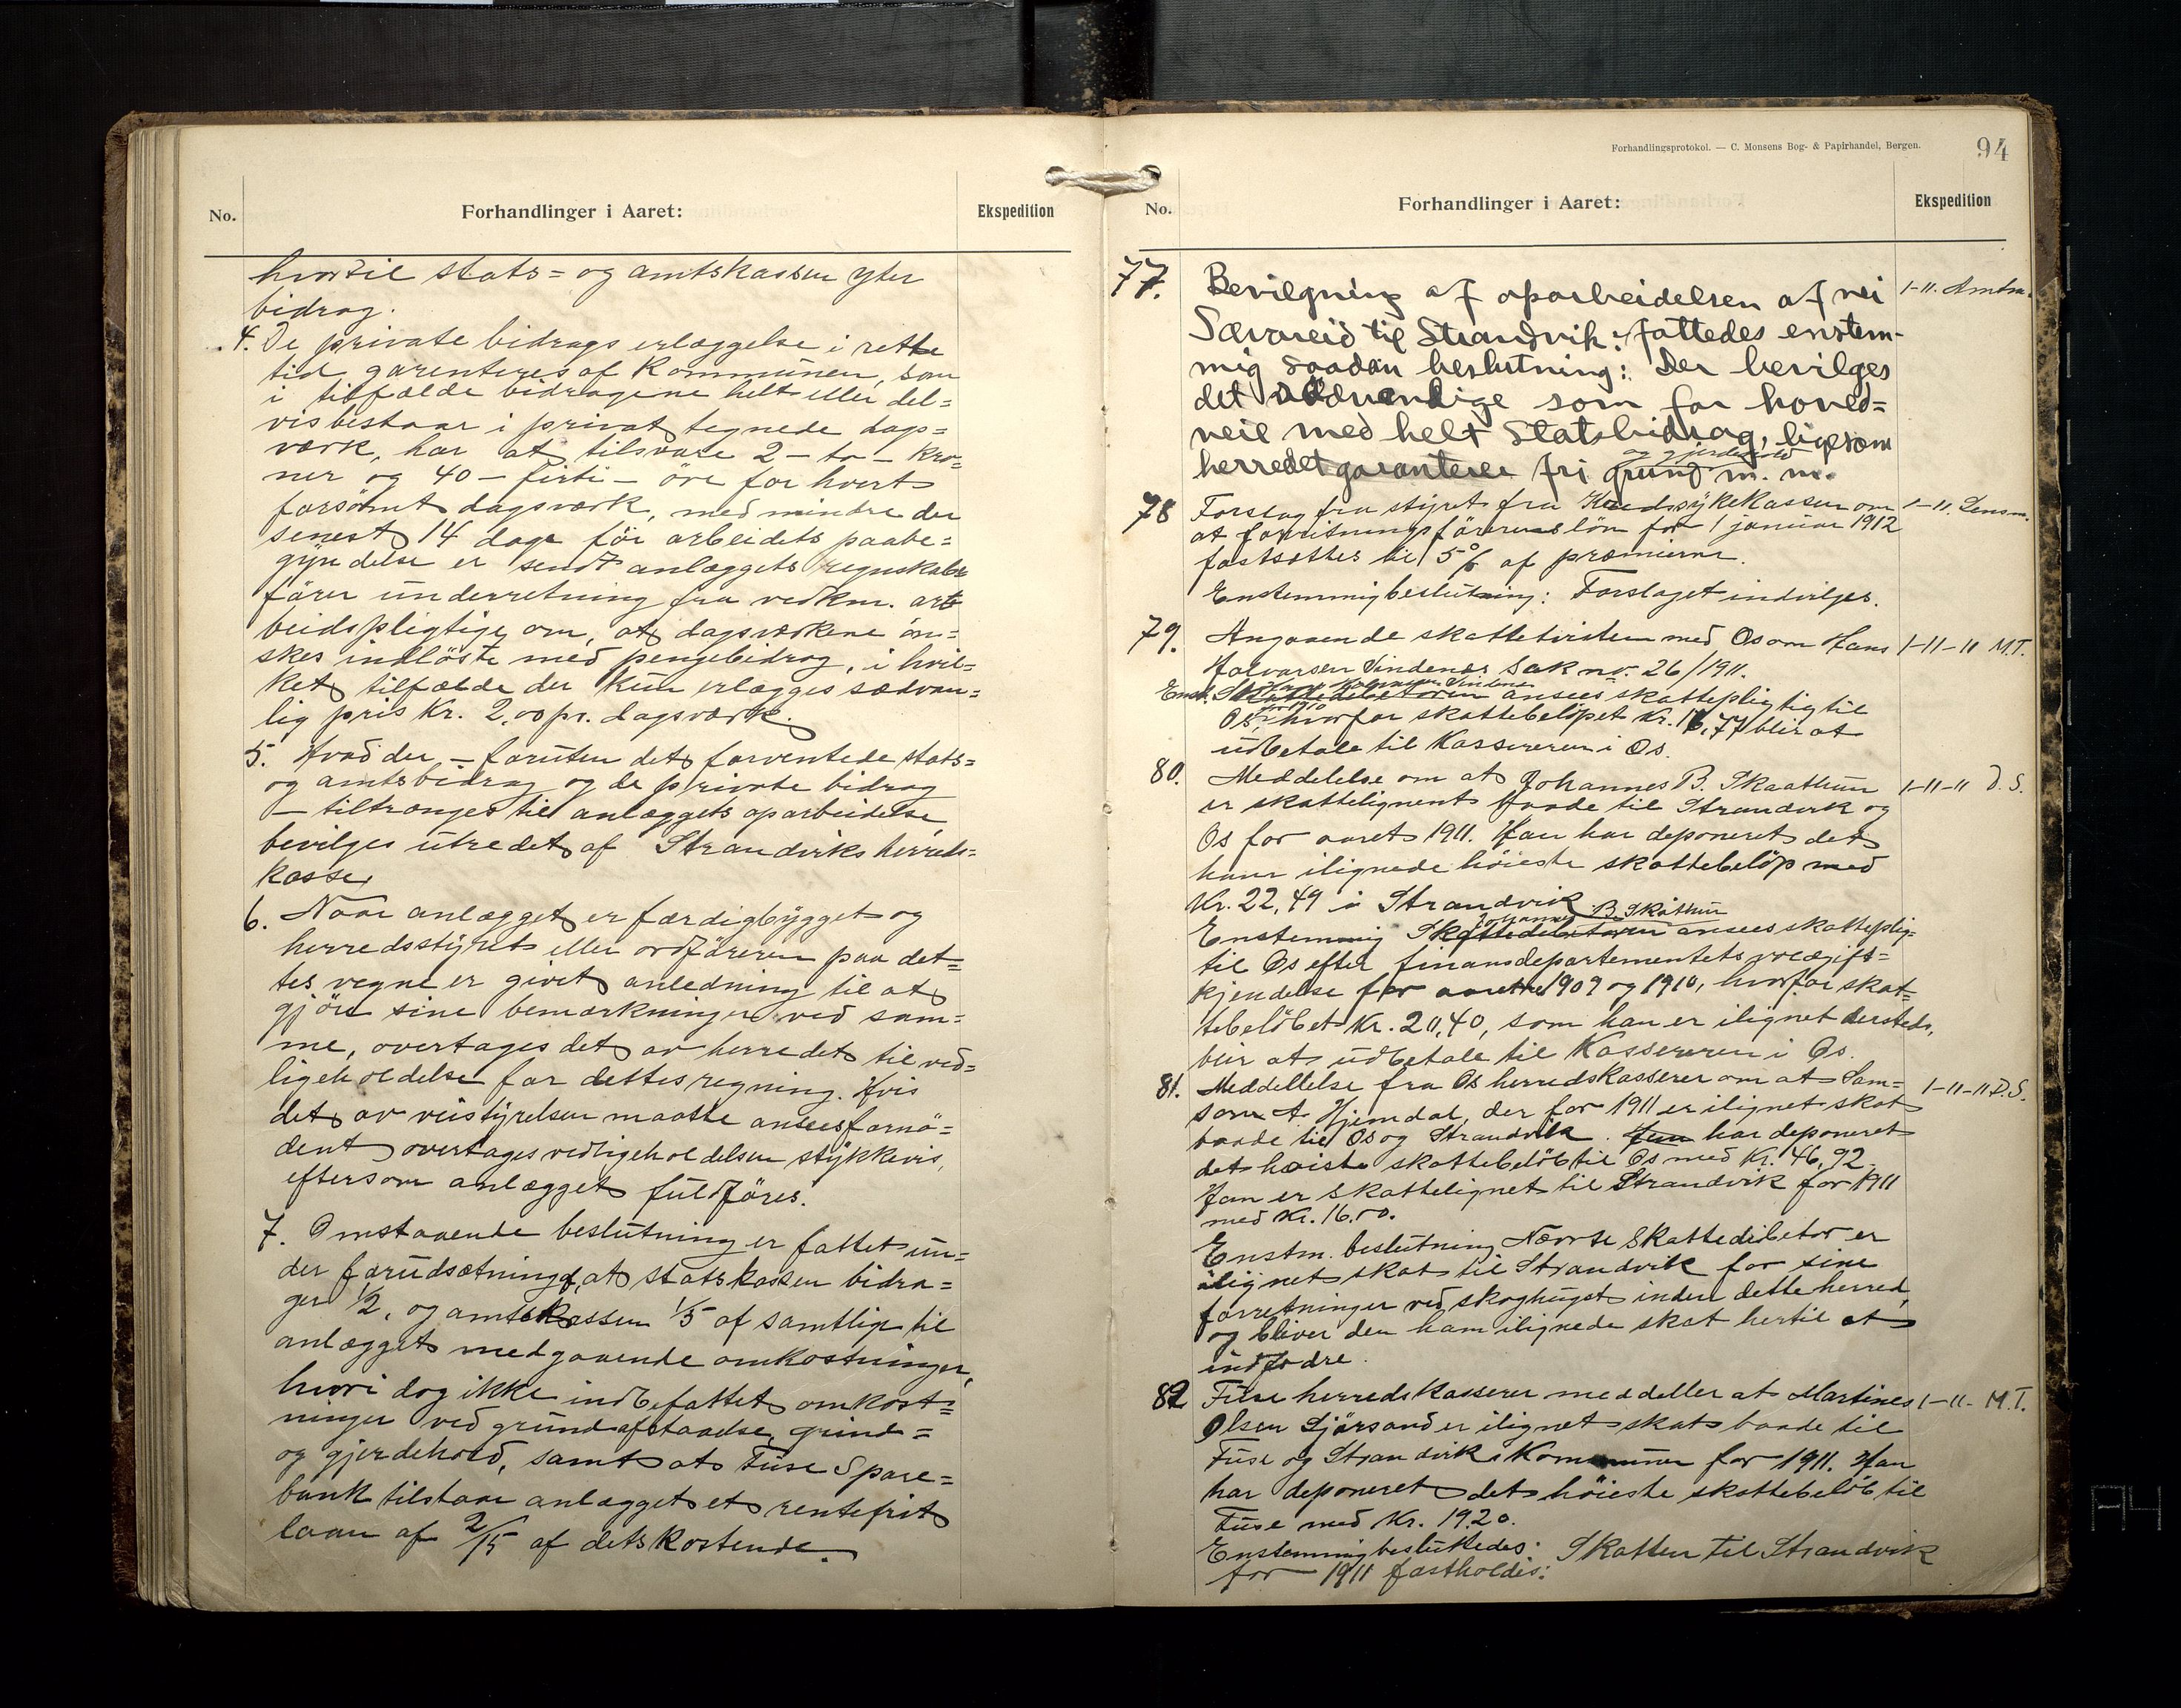 No.
Forhandlinger i Aaret:
Ekspedition
hvortil stats= og amtskassen yter
bidrag.
4. De private bidrags erlæggelse i rette
tid garenteres af Kommunen, som
i tilfælde bidragene helt eller del=
vis bestaar i privat tegnede dags=
værk, har at tilsvare 2 - to - kro=
ner og 40 - firti - öre for hvert
forsömt dagsværk, med mindre der
senest 14 dage för arbeidets paabe=
gyndelse er sendt anlæggets regnskabs
förer underretning fra vedkm. ar
beidspligtige om, at dagsverkene ön=
skes indlöste med pengebidrag, i hvil=
ket tilfælde der kun erlægges sædvan=
lig pris Kr. 2,00 pr. dagsværk.
5. Hvad der - foruten det forventede stats=
og amtsbidrag og de private bidrag
- tiltrænges til anlæggets oparbeidelse
bevilges utredet af Strandviks herreds=
kasse.
6. Naar anlægget er færdigbygget og
herredsstyret eller ordföreren paa det=
tes vegne er givet anledning til at
gjöre sine bemærkninger ved sam=
me, overtages det av herredet til ved=
ligeholdelse for dettes regning. Hvis
det av veistyrelsen maatte ansees fornö=
dent overtages vedligeholdelsen stykkevis,
eftersom anlægget fuldföres.
7. Omstaaende beslutning er fattet un=
der forudsætning af, at statskassen bidra=
ger 1/2, og amtskassen 1/5 af samtlige til
anlægget medgaaende omkostninger,
hvori dog ikke indbefattet omkost=
ninger ved grundafstaaelse, grind=
og gjerdehold, samt at Fuse Spare=
bank tilstaar anlægget et rentefrit
laan af 2/15 af dets kostende.
Forhandlingsprotokol. — C. Monsens Bog- & Papirhandel, Bergen.
94
No.
Forhandlinger i Aaret:
Ekspedition
77. Bevilgning af oparbeidelsen af vei 1-11. Amtm.
Sævareid til Strandvik: fattedes enstem-
mig saadan beslutning: Der bevilges
det nödvendige som for hoved=
veie med helt Statsbidrag, ligesom
og gjerdehold
herredet garanterer fri grund m. m.
78 Forslag fra styret fra Kredssykekassen om 1-11. Lensm.
at forretningsförerens lön for 1 januar 1912
fastsættes til 5% af præmierne.
Enstemmig beslutning: Forslaget indvilges.
79. Angaaende skattetvisten med Os om Hans 1-11-11 M.T.
Halvorsen Vindenes Sak no. 26/1911.
Hans Halvorsen Vindenes
Enst. Skattedebitoren ansees skattepligtig til
for 1910
Os, hvorfor skattebelöpet Kr. 16,77 blir at
udbetale til Kassereren i Os.
80. Meddelelse om at Johannes B. Skaathun 1-11-11 D. S.
er skattelignent baade til Strandvik og
Os for aaret 1911. Han har deponeret det
ham ilignede höieste skattebelöp med
Kr. 22,49 i Strandvik
Johannes B. Skåthun
Enstemmig Skattedebitoren ansees skatteplig=
til Os efter finansdepartementets voldgifts=
kjendelse for aarene 1909 og 1910, hvorfor skat=
tebelöbet Kr. 20,40, som han er ilignet dersteds,
blir at udbetale til Kassereren i Os.
81. Meddellelse fra Os herredskasserer om at Sam= 1-11-11 D.S.
son A. Hjemdal, der for 1911 er ilignet skat
baade til Os og Strandvik. Han har deponeret
det höieste skattebelöb til Os med Kr. 46,92.
Han er skattelignet til Strandvik for 1911
med Kr. 16.00.
Enstm. beslutning Nævnte Skattedebitor er
ilignet skat til Strandvik for sine
forretninger ved skoghuget inden dette herred,
og bliver den ham ilignede skat hertil at
indfodre.
82 Fuse herredskasserer meddeller at Martines 1-11- M.T.
Olsen Sjörsand er ilignet skat baade til
Fuse og Strandvik Kommuner for 1911. Han
har deponeret det höieste skattebelöb til
Fuse med Kr. 19.20.
Enstemmig besluttedes: Skatten til Strandvik
for 1911 fastholdes.